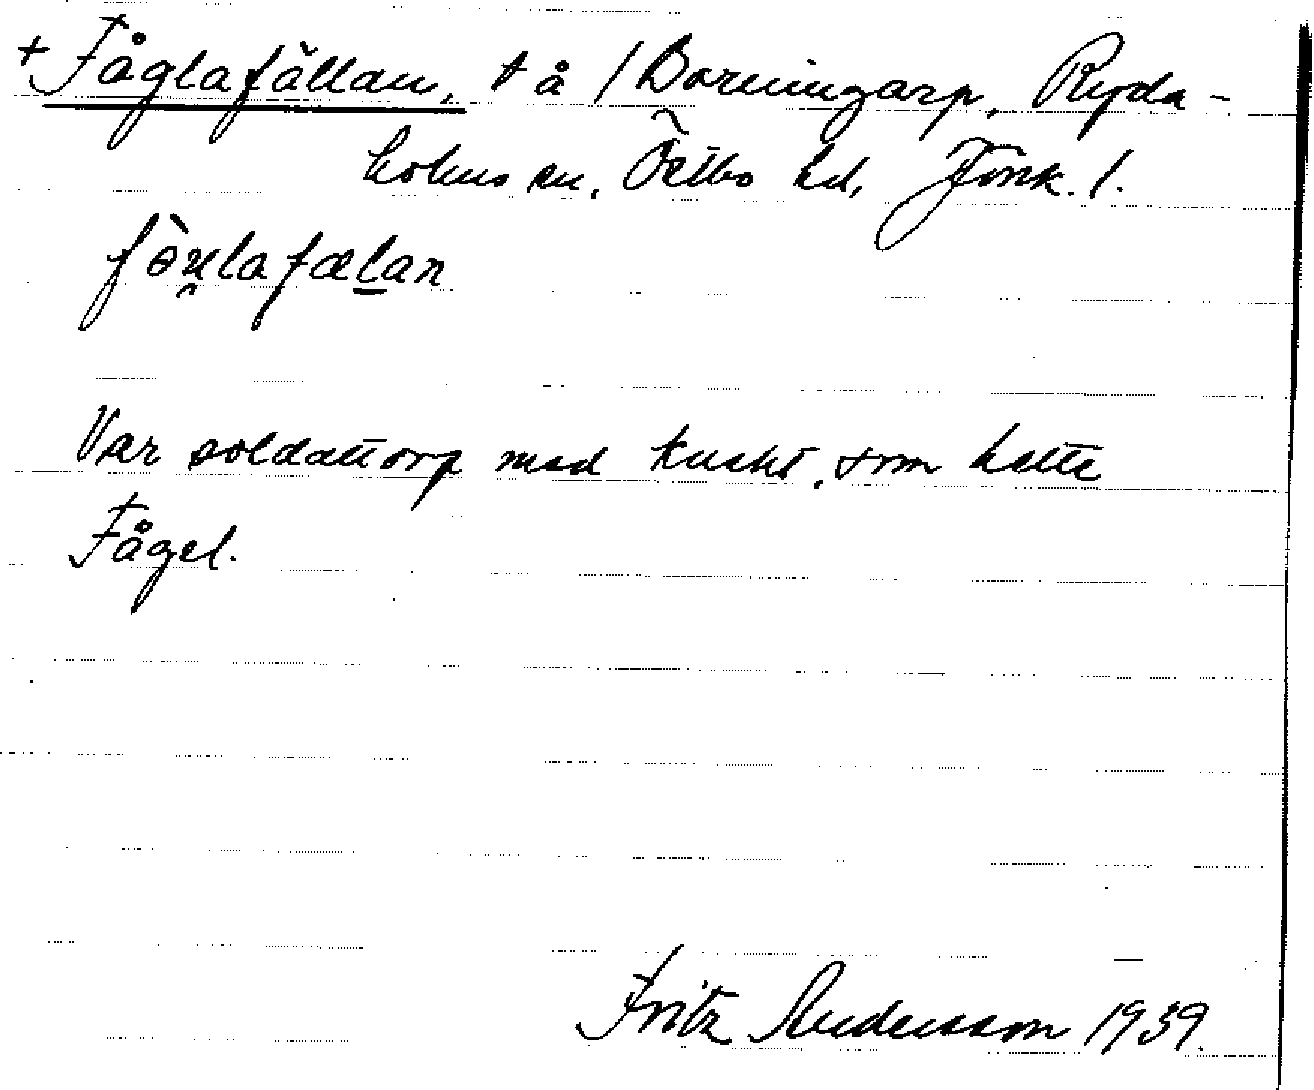 + Fåglafällan, t å /Borningarp, Ryda-
holms sn, Östbo hd, Jönk. l.
Var soldattorp med knekt, som hette
Fågel.
Fritz Andersson 1939.